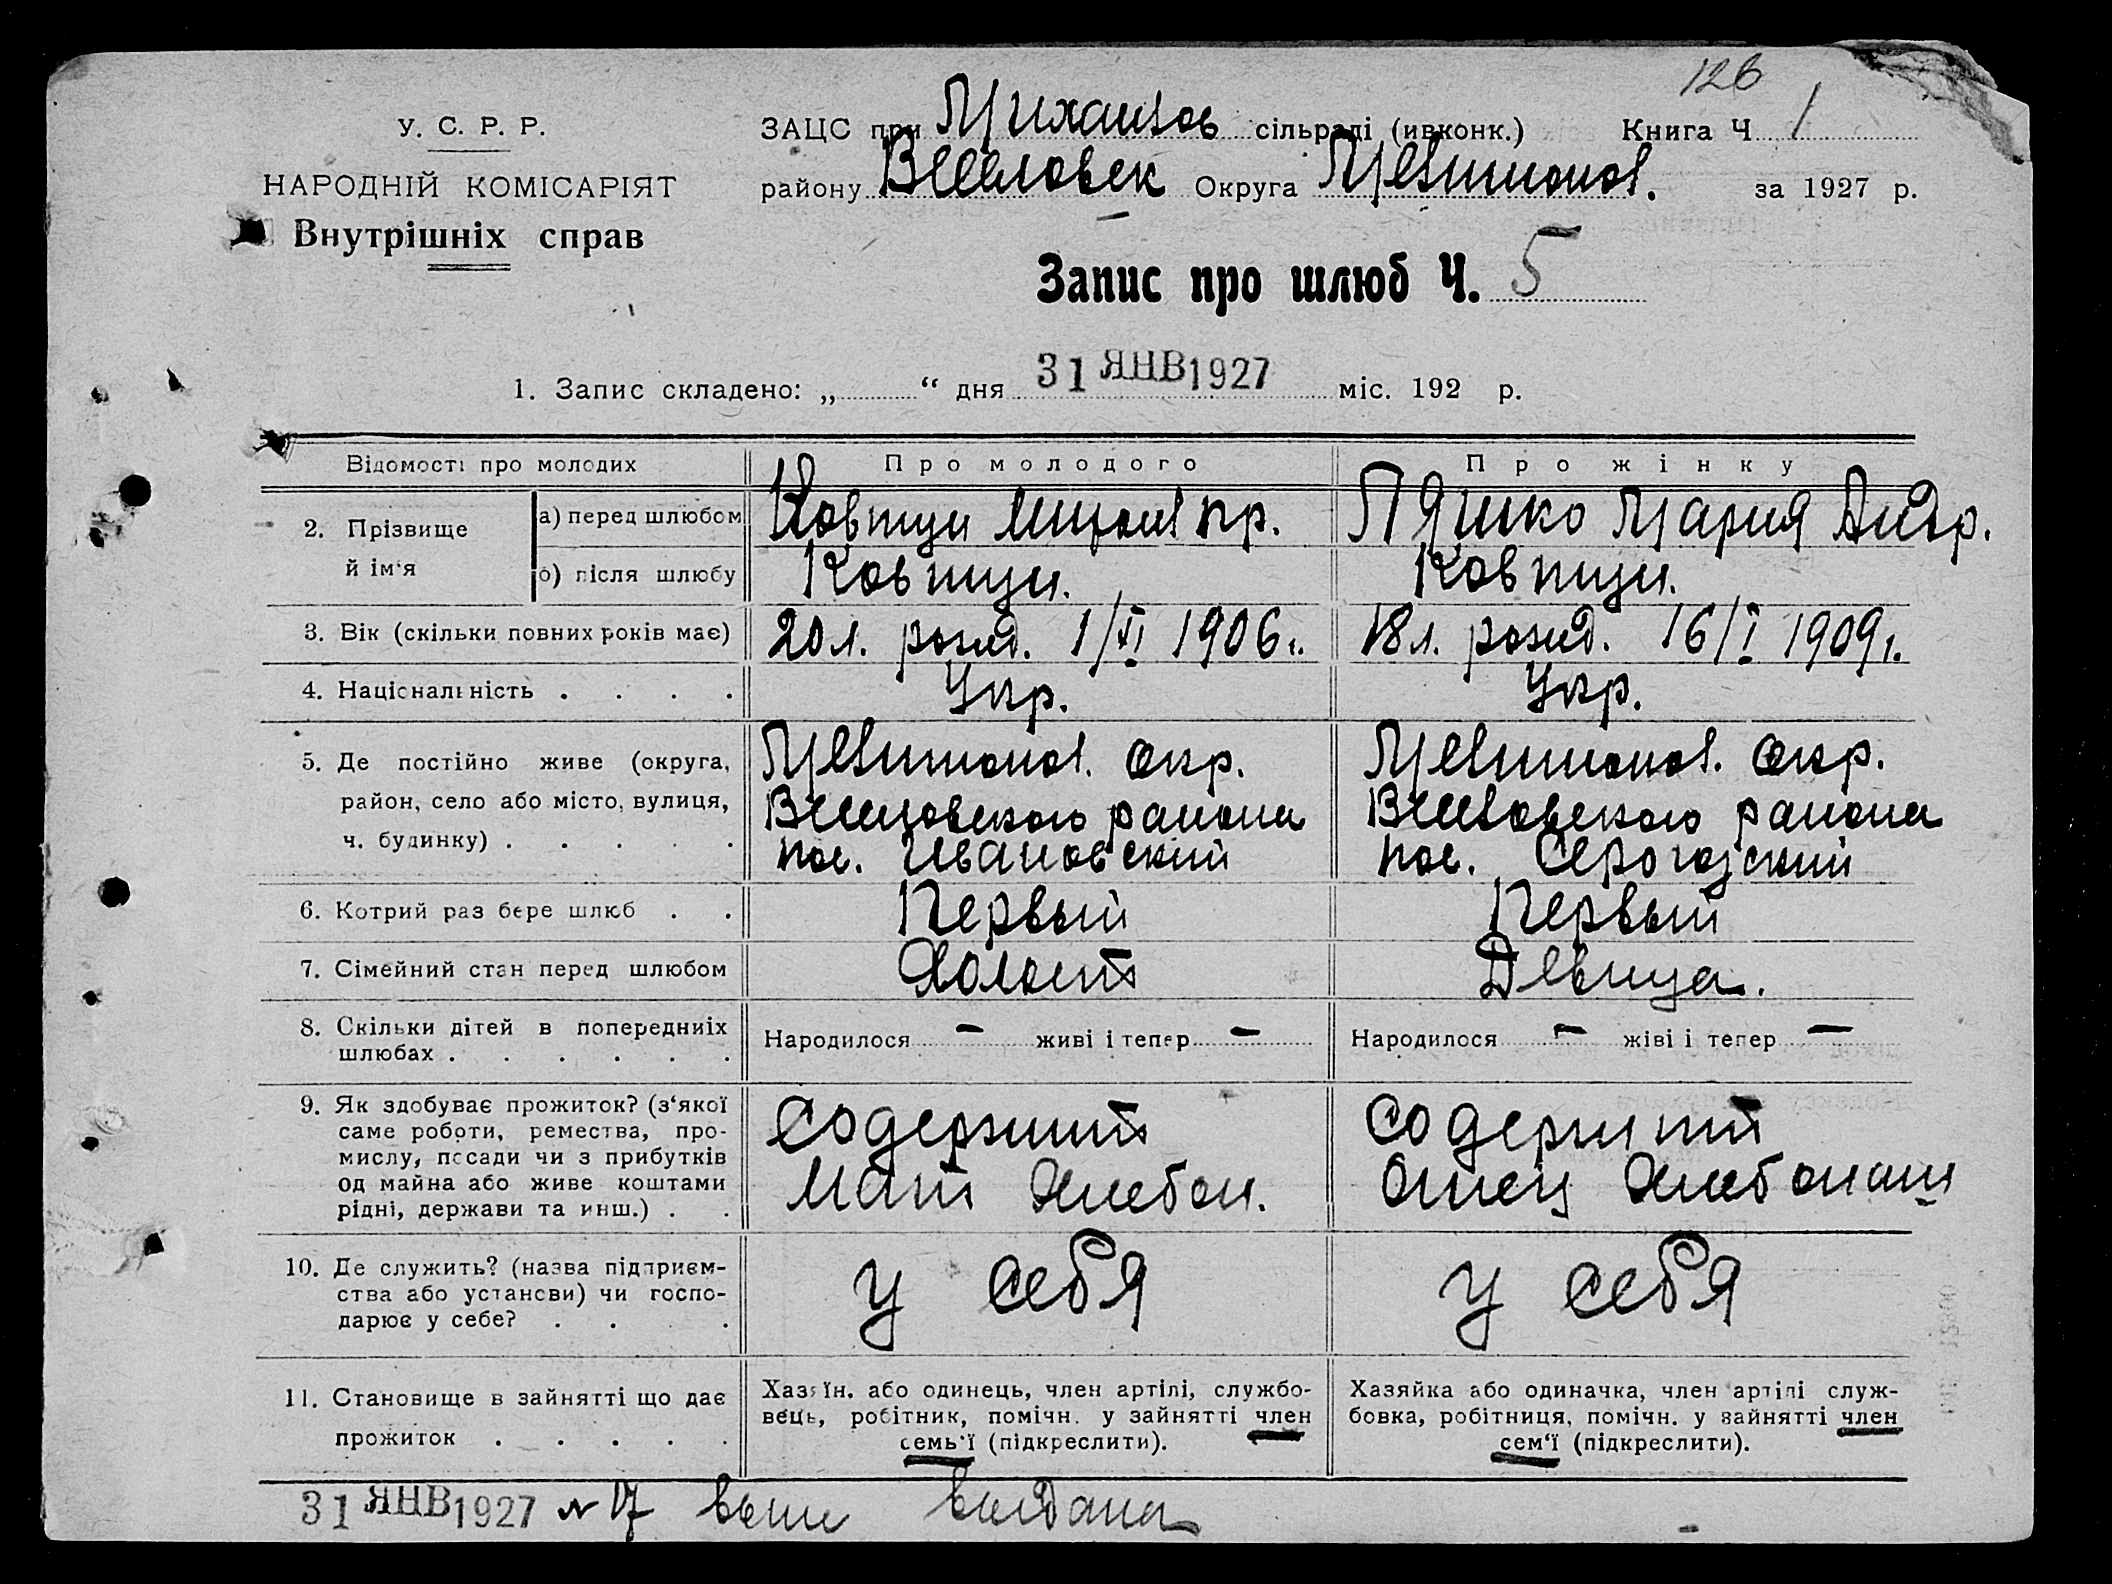 126
У. С. Р. Р.
НАРОДНІЙ КОМІСАРІЯТ
Внутрішніх справ
ЗАЦС при Михайлов сільраді (ивконк.) Книга Ч 1
району Веселовск Округа Мелитопол. за 1927 р.
Запис про шлюб Ч. 5
1. Запис складено: „ “ дня 31 ЯНВ 1927 міс. 192 р.
Відомості про молодих Про молодого Про жінку
2. Прізвище й ім'я
а) перед шлюбом Ковтун пр. Пяшко Мария Андр.
б) після шлюбу Ковтун. Ковтун.
3. Вік (скільки повних років має) 20 л. рожд. 1/XI 1906 г. 18 л. рожд. 16/I 1909 г.
4. Національність . . . . Укр. Укр.
5. Де постійно живе (округа, район, село або місто, вулиця, ч. будинку) . . . . .
Мелитопол. окр. Мелитопол. окр.
Веселовского района Веселовского района
пос. Ивановский пос. Серогозский
6. Котрий раз бере шлюб . . Первый Первый
7. Сімейний стан перед шлюбом Холост Девица.
8. Скільки дітей в попередниіх шлюбах . . . . . . Народилося — живі і тепер — Народилося — жіві і тепер —
9. Як здобуває прожиток? (з'якої
саме роботи, ремества, про-
мислу, посади чи з прибутків
од майна або живе коштами
рідні, держави та инш.) . .
Содержит Содержит
мат хлебоп. отец хлебопаш
10. Де служить? (назва підприєм-
ства або установи) чи госпо-
дарює у себе? . . .
у себя у себя
11. Становище в зайнятті що дає
прожиток . . . . .
Хазяїн. або одинець, член артілі, службо-
вець, робітник, помічн. у зайнятті член
семь'ї (підкреслити).
Хазяйка або одиначка, член артілі служ-
бовка, робітниця, помічн. у зайнятті член
сем'ї (підкреслити).
31 ЯНВ 1927 № 17 выпи выдана